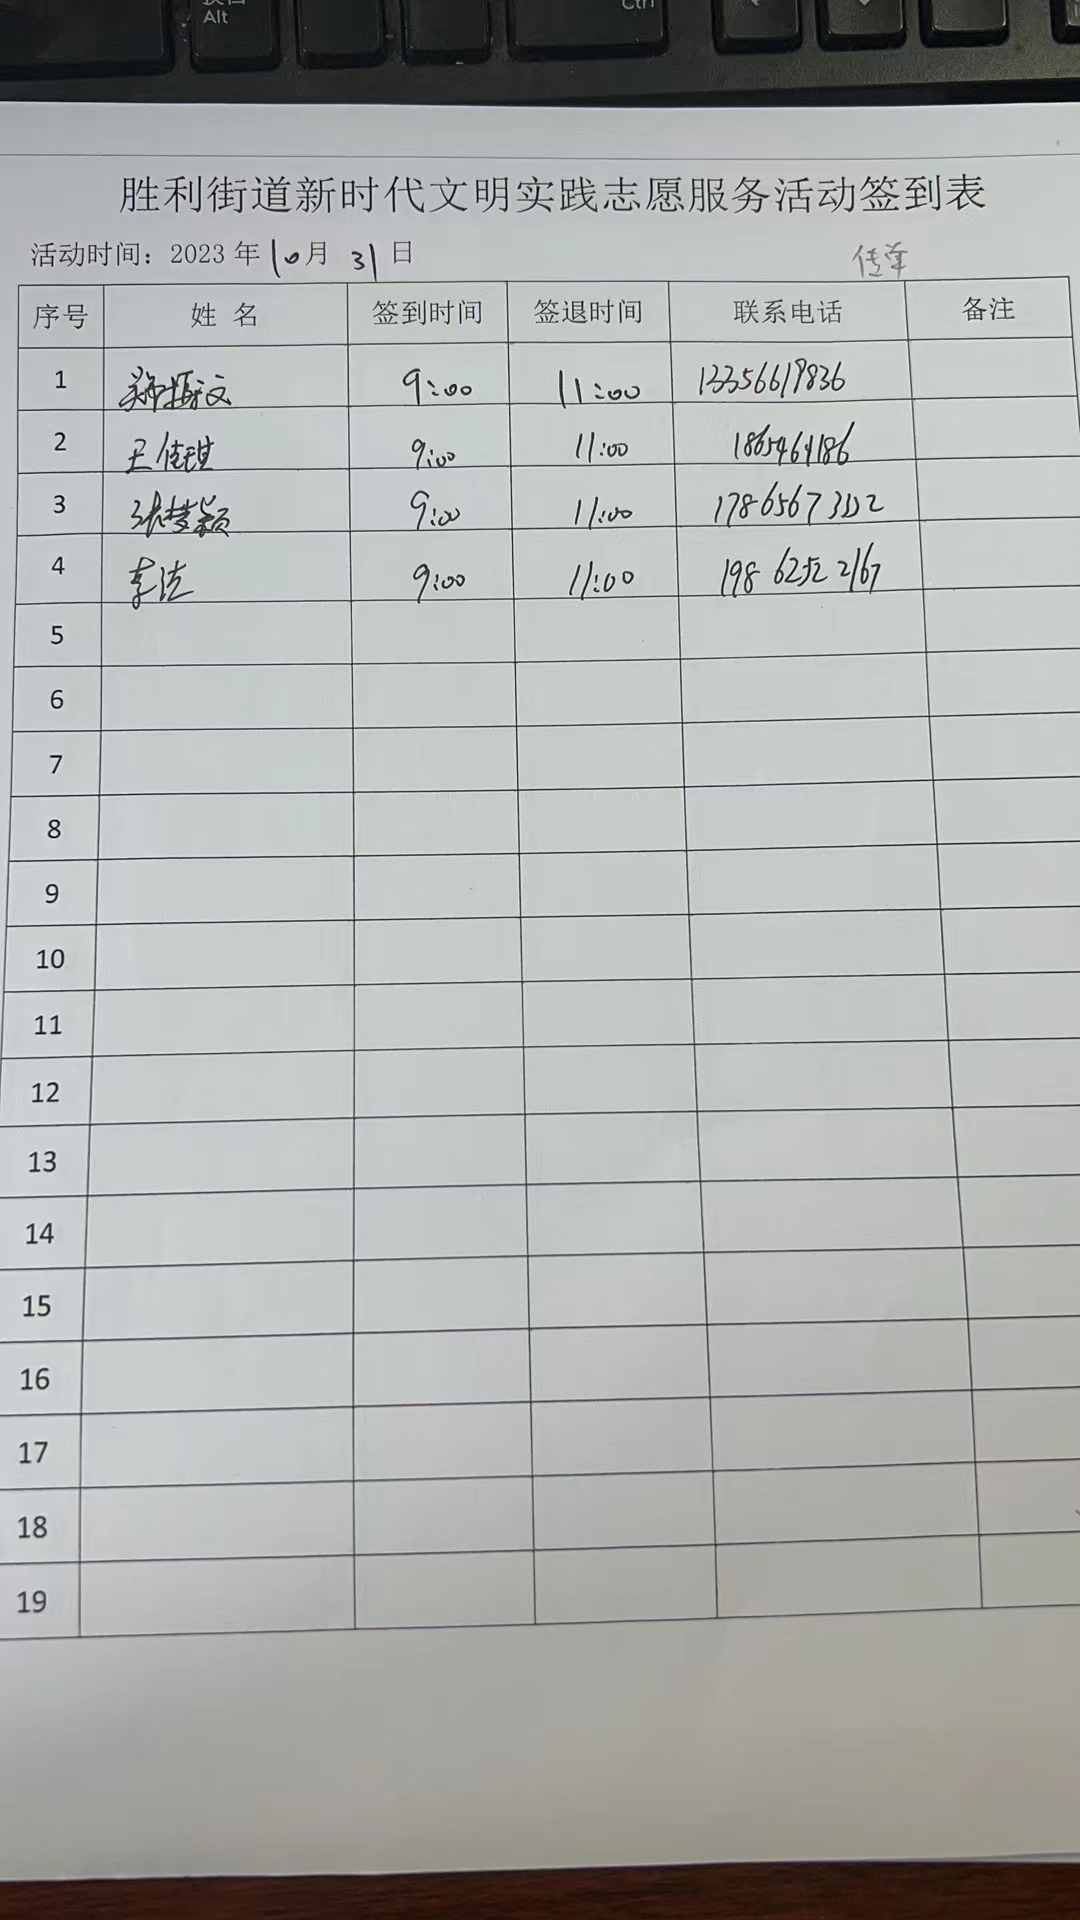 Alt
Ctrl
胜利街道新时代文明实践志愿服务活动签到表
活动时间：2023 年 10 月 31 日
传单
序号 姓 名 签到时间 签退时间 联系电话 备注
1 郑振文 9:00 11:00 13356619836
2 王佳琪 9:00 11:00
3 张梦颖 9:00 11:00
4 李洁 9:00 11:00 198 6252 2167
5
6
7
8
9
10
11
12
13
14
15
16
17
18
19